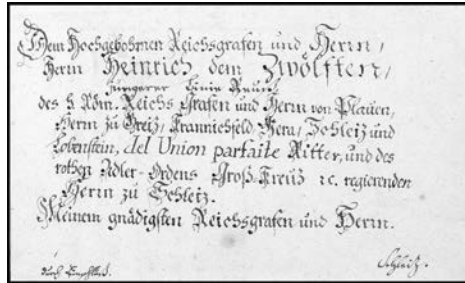 Dem Hochgebohrnen Reichsgrafen und Herrn,
Herrn Heinrich dem Zwölften,
Jüngerer Linie Reuß,
des h. Röm. Reichs Grafen und Herrn von Plauen,
Herrn zu Greiz, Crannichfeld, Gera, Schleiz und
Lobenstein, del Union parfaite Ritter, und des
rothen Adler-Ordens Groß-Creuz ꝛc. regierenden
Herrn zu Schleiz.
Meinem gnädigsten Reichsgrafen und Herrn.
Schleiz.
durch